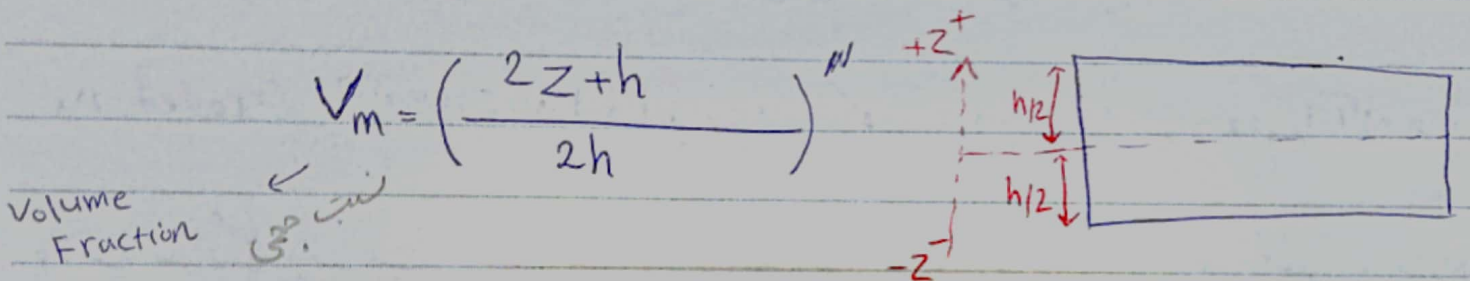 V_m = ( (2z + h) / 2h )^n
Volume
Fraction
نسبت حجمی
+z
+
h/2
h/2
-z
-